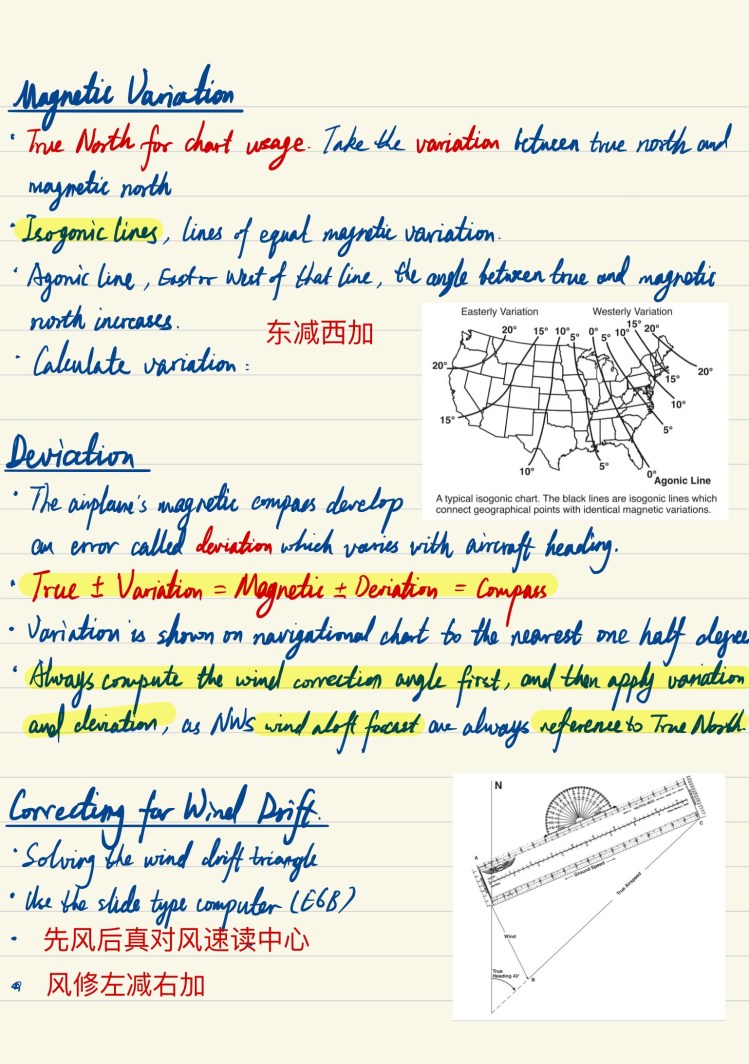 Magnetic Variation
· True North for chart usage. Take the variation between true north and
magnetic north
· Isogonic lines, lines of equal magnetic variation.
· Agonic line, East or West of that line, the angle between true and magnetic
north increases.
东减西加
· Calculate variation :
Easterly Variation Westerly Variation
20° 15° 10° 5° 0° 5° 10° 15° 20°
20°
20°
15°
10°
15°
5°
10°
5°
0°
Agonic Line
A typical isogonic chart. The black lines are isogonic lines which
connect geographical points with identical magnetic variations.
Deviation
· The airplane's magnetic compass develop
an error called deviation which varies with aircraft heading.
· True ± Variation = Magnetic ± Deviation = Compass
· Variation is shown on navigational chart to the nearest one half degree
· Always compute the wind correction angle first, and then apply variation
and deviation, as NWS wind aloft focast are always reference to True North.
Correcting for Wind Drift.
· Solving the wind drift triangle
· Use the slide type computer (E6B)
· 先风后真对风速读中心
风修左减右加
N
A
C
Ground Speed
True Airspeed
Wind
True
Heading 43°
B